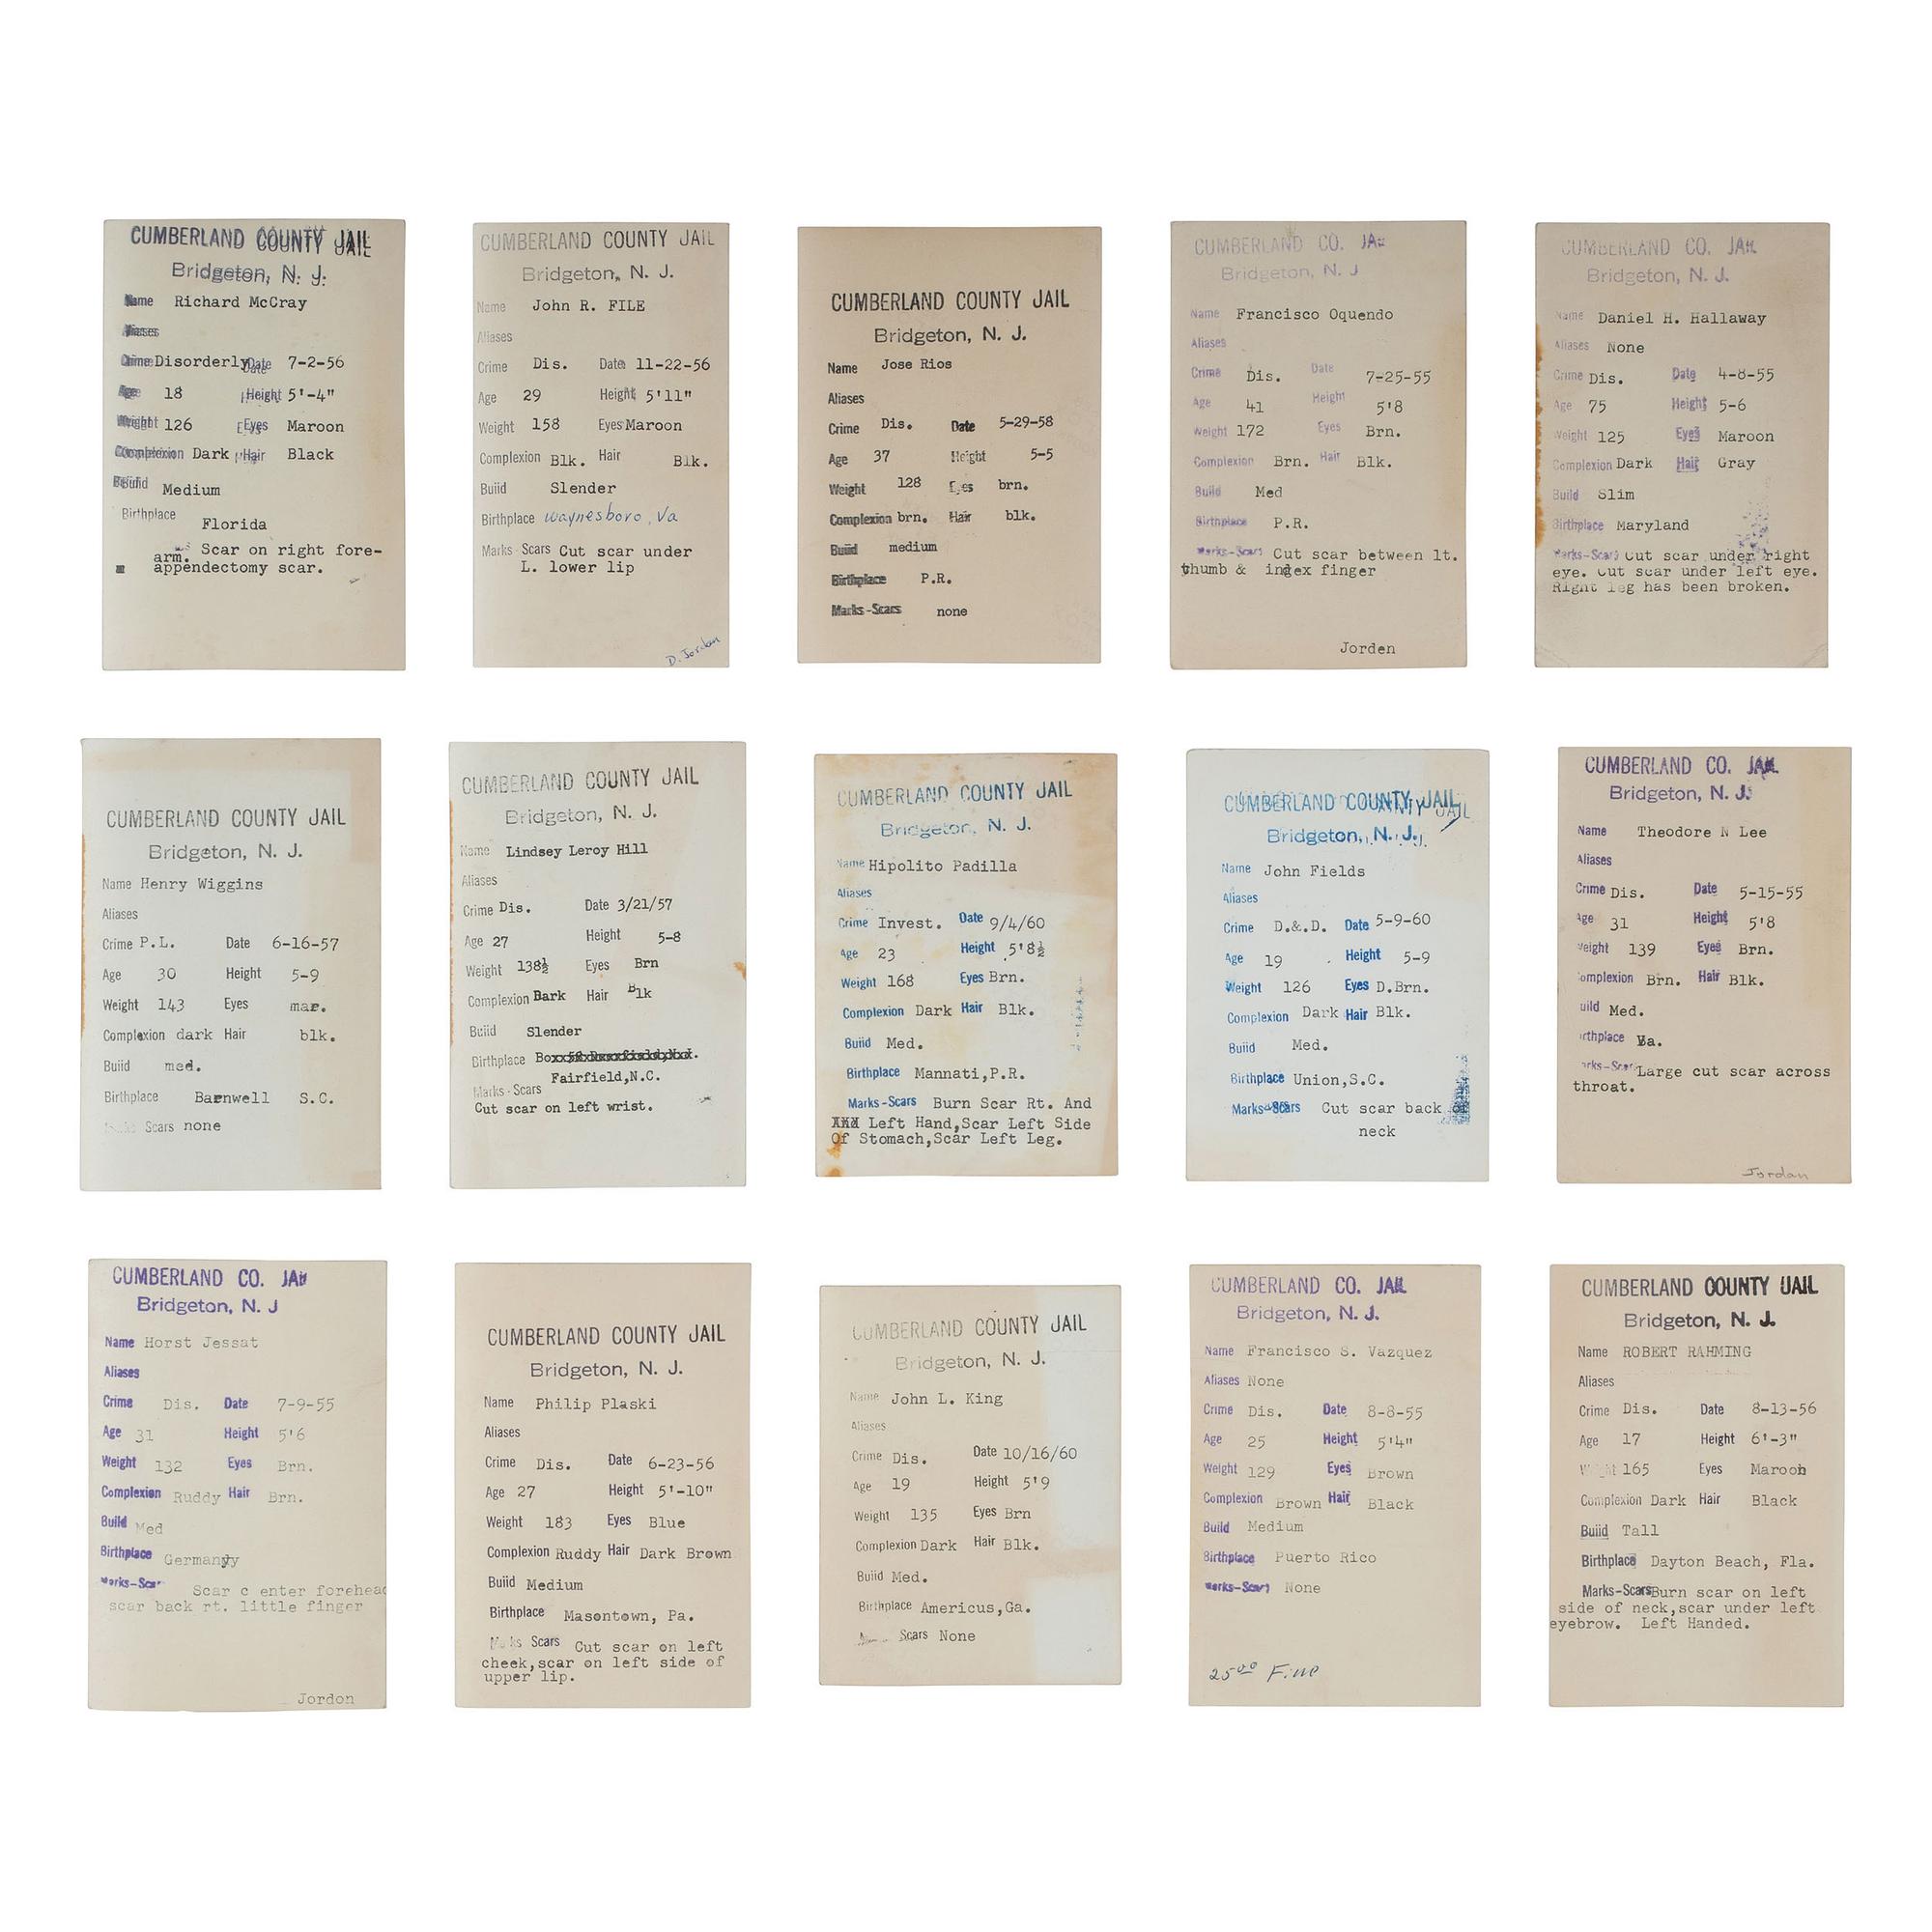 CUMBERLAND COUNTY JAIL
Bridgeton, N. J.
Name Richard McCray
Aliases
Crime Disorderly Date 7-2-56
Age 18 Height 5'-4"
Weight 126 Eyes Maroon
Complexion Dark Hair Black
Build Medium
Birthplace Florida
Scar on right fore-
arm.
appendectomy scar.
CUMBERLAND COUNTY JAIL
Bridgeton, N. J.
Name John R. FILE
Aliases
Crime Dis. Date 11-22-56
Age 29 Height 5'11"
Weight 158 Eyes Maroon
Complexion Blk. Hair Blk.
Buiid Slender
Birthplace Waynesboro, Va
Marks-Scars Cut scar under
L. lower lip
D. Jordan
CUMBERLAND COUNTY JAIL
Bridgeton, N. J.
Name Jose Rios
Aliases
Crime Dis. Date 5-29-58
Age 37 Height 5-5
Weight 128 Eyes brn.
Complexion brn. Hair blk.
Buiid medium
Birthplace P.R.
Marks-Scars none
CUMBERLAND CO. JAIL
Bridgeton, N. J
Name Francisco Oquendo
Aliases
Crime Dis. Date 7-25-55
Age 41 Height 5'8
Weight 172 Eyes Brn.
Complexion Brn. Hair Blk.
Build Med
Birthplace P.R.
Marks-Scars Cut scar between lt.
thumb & index finger
Jorden
CUMBERLAND CO. JAIL
Bridgeton, N. J.
Name Daniel H. Hallaway
Aliases None
Crime Dis. Date 4-8-55
Age 75 Height 5-6
Weight 125 Eyes Maroon
Complexion Dark Hair Gray
Build Slim
Birthplace Maryland
Marks-Scars Cut scar under right
eye. Cut scar under left eye.
Right leg has been broken.
CUMBERLAND COUNTY JAIL
Bridgeton, N. J.
Name Henry Wiggins
Aliases
Crime P.L. Date 6-16-57
Age 30 Height 5-9
Weight 143 Eyes mar.
Complexion dark Hair blk.
Buiid med.
Birthplace Barnwell S.C.
Marks Scars none
CUMBERLAND COUNTY JAIL
Bridgeton, N. J.
Name Lindsey Leroy Hill
Aliases
Crime Dis. Date 3/21/57
Age 27 Height 5-8
Weight 138½ Eyes Brn
Complexion Bark Hair Blk
Buiid Slender
Birthplace
Fairfield,N.C.
Marks-Scars
Cut scar on left wrist.
CUMBERLAND COUNTY JAIL
Bridgeton, N. J.
Name Hipolito Padilla
Aliases
Crime Invest. Date 9/4/60
Age 23 Height 5'8½
Weight 168 Eyes Brn.
Complexion Dark Hair Blk.
Buiid Med.
Birthplace Mannati,P.R.
Marks-Scars Burn Scar Rt. And
Left Hand,Scar Left Side
Of Stomach,Scar Left Leg.
CUMBERLAND COUNTY JAIL
Bridgeton, N. J.
Name John Fields
Aliases
Crime D.&.D. Date 5-9-60
Age 19 Height 5-9
Weight 126 Eyes D.Brn.
Complexion Dark Hair Blk.
Buiid Med.
Birthplace Union,S.C.
Marks-Scars Cut scar back of
neck
CUMBERLAND CO. JAIL
Bridgeton, N. J.
Name Theodore N Lee
Aliases
Crime Dis. Date 5-15-55
Age 31 Height 5'8
Weight 139 Eyes Brn.
Complexion Brn. Hair Blk.
Build Med.
Birthplace Va.
Marks-Scars Large cut scar across
throat.
Jordan
CUMBERLAND CO. JAIL
Bridgeton, N. J
Name Horst Jessat
Aliases
Crime Dis. Date 7-9-55
Age 31 Height 5'6
Weight 132 Eyes Brn.
Complexion Ruddy Hair Brn.
Build Med
Birthplace Germany
Marks-Scar Scar c enter forehead
scar back rt. little finger
Jordon
CUMBERLAND COUNTY JAIL
Bridgeton, N. J.
Name Philip Plaski
Aliases
Crime Dis. Date 6-23-56
Age 27 Height 5'-10"
Weight 183 Eyes Blue
Complexion Ruddy Hair Dark Brown
Buiid Medium
Birthplace Masontown, Pa.
Marks Scars Cut scar on left
cheek,scar on left side of
upper lip.
CUMBERLAND COUNTY JAIL
Bridgeton, N. J.
Name John L. King
Aliases
Crime Dis. Date 10/16/60
Age 19 Height 5'9
Weight 135 Eyes Brn
Complexion Dark Hair Blk.
Buiid Med.
Birthplace Americus,Ga.
Scars None
CUMBERLAND CO. JAIL
Bridgeton, N. J.
Name Francisco S. Vazquez
Aliases None
Crime Dis. Date 8-8-55
Age 25 Height 5'4"
Weight 129 Eyes Brown
Complexion Brown Hair Black
Build Medium
Birthplace Puerto Rico
Marks-Scars None
25.00 Fine
CUMBERLAND COUNTY JAIL
Bridgeton, N. J.
Name ROBERT RAHMING
Aliases
Crime Dis. Date 8-13-56
Age 17 Height 6'-3"
Weight 165 Eyes Maroon
Complexion Dark Hair Black
Buiid Tall
Birthplace Dayton Beach, Fla.
Marks-Scars Burn scar on left
side of neck,scar under left
eyebrow. Left Handed.